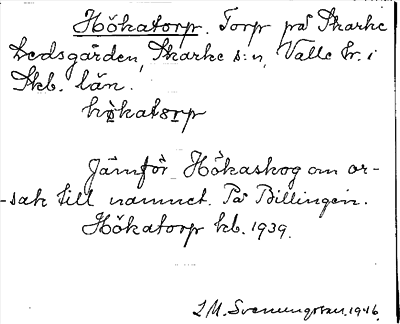 Hökatorp. Torp på Skarke
Ledsgården, Skarke s:n, Valle hr. i
Skb. län.
hökatorp
Jämför Hökaskog om or-
-sak till namnet. På Billingen.
Hökatorp kb. 1939.
S.M. Svenungsson. 1946.